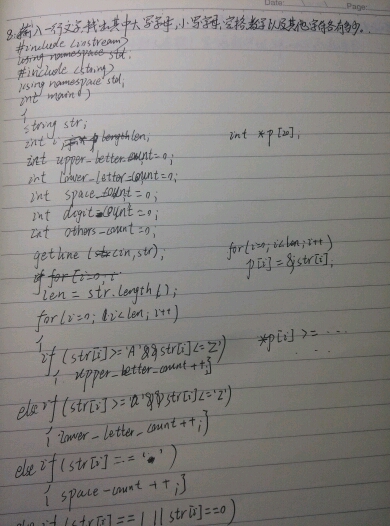 8. 输入一行文字,找出其中大写字母,小写字母,空格,数字以及其他字符各有多少。
#include <iostream>
using namespace std.
#include <string>
using namespace std,
int main()
{
string str;
int i, length len,
int *p[20],
int upper_letter_count=0;
int lower_letter_count=0;
int space_count=0;
int digit_count=0;
int others_count=0;
getline (cin,str);
for(i=0;i<len;i++)
if for (i=0, i
p[i]=&str[i],
len = str.length();
for(i=0; i<len; i++)
{
if (str[i]>='A'&&str[i]<='Z')
*p[i] >= ...
{ upper_letter_count++;}
...
else if (str[i]>='a'&&str[i]<='z')
{ lower_letter_count++;}
else if (str[i]==' ')
{ space_count++;}
else if (str[i]==1||str[i]==0)